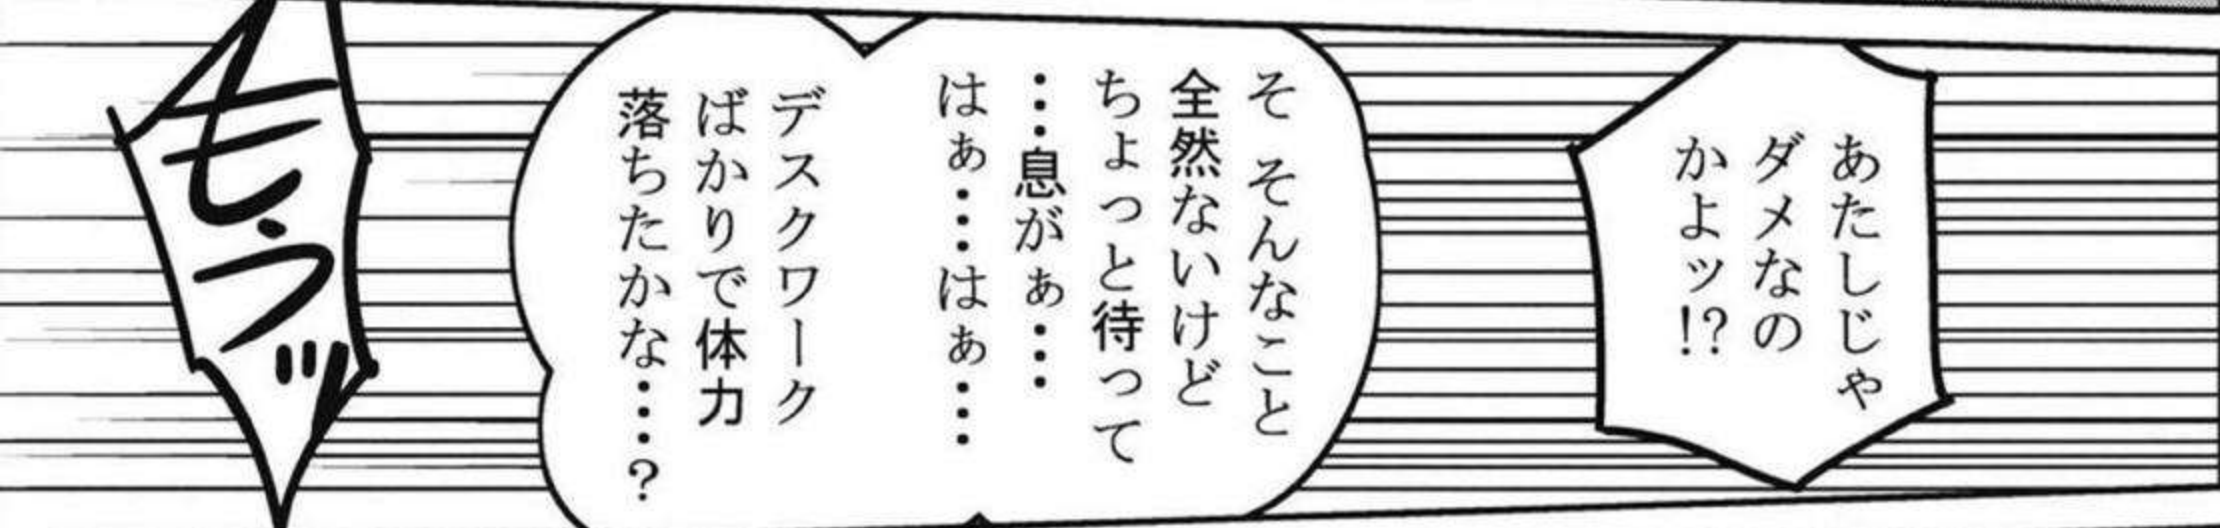 あたしじゃ
ダメなの
かよッ!?
そ そんなこと
全然ないけど
ちょっと待って
…息がぁ…
はぁ…はぁ…
デスクワーク
ばかりで体力
落ちたかな…?
もうッ